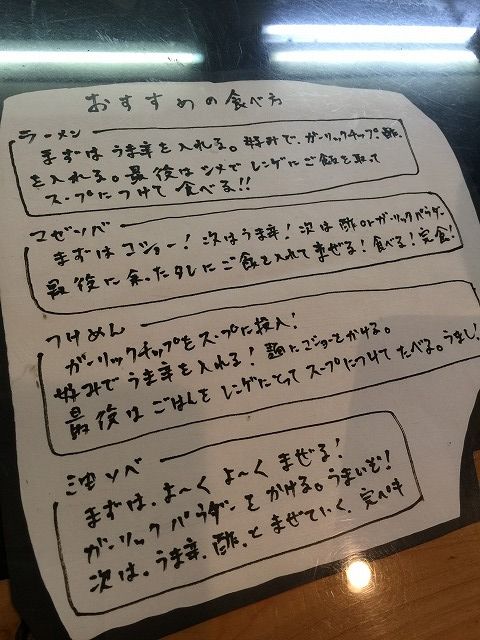 おすすめの食べ方
ラーメン
まずはうま辛を入れる。好みで、ガーリックチップ、酢、
を入れる。最後はシメでレンゲにご飯を取って
スープにつけて食べる!!
マゼソバ
まずはコショー!次はうま辛!次は酢orガーリックパウダー
最後に余ったタレにご飯を入れて混ぜる!食べる!完食!
つけめん
ガーリックチップをスープに投入!
好みでうま辛を入れる!麺にコショーをかける。
最後はごはんをレンゲにとってスープにつけてたべる。うまし!
油ソバ
まずは、よ〜くよ〜くまぜる!
ガーリックパウダーをかける。うまいぞ!
次は。うま辛、酢、とまぜていく、完ペキ